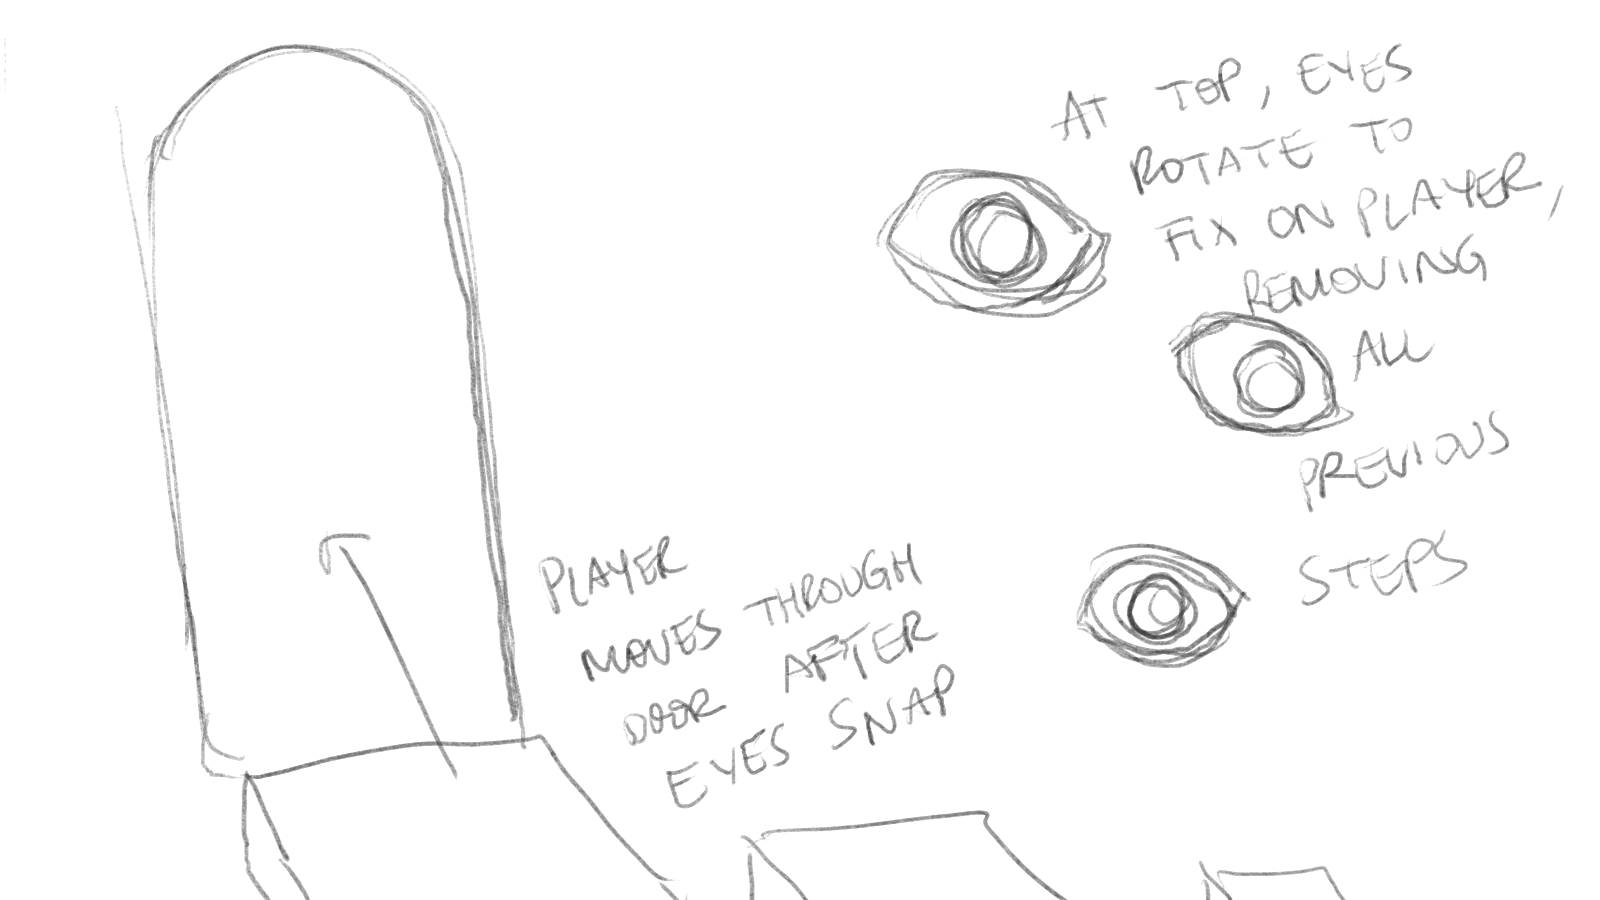 AT TOP, EYES
ROTATE TO
FIX ON PLAYER,
REMOVING
ALL
PREVIOUS
STEPS
PLAYER
MOVES THROUGH
DOOR AFTER
EYES SNAP